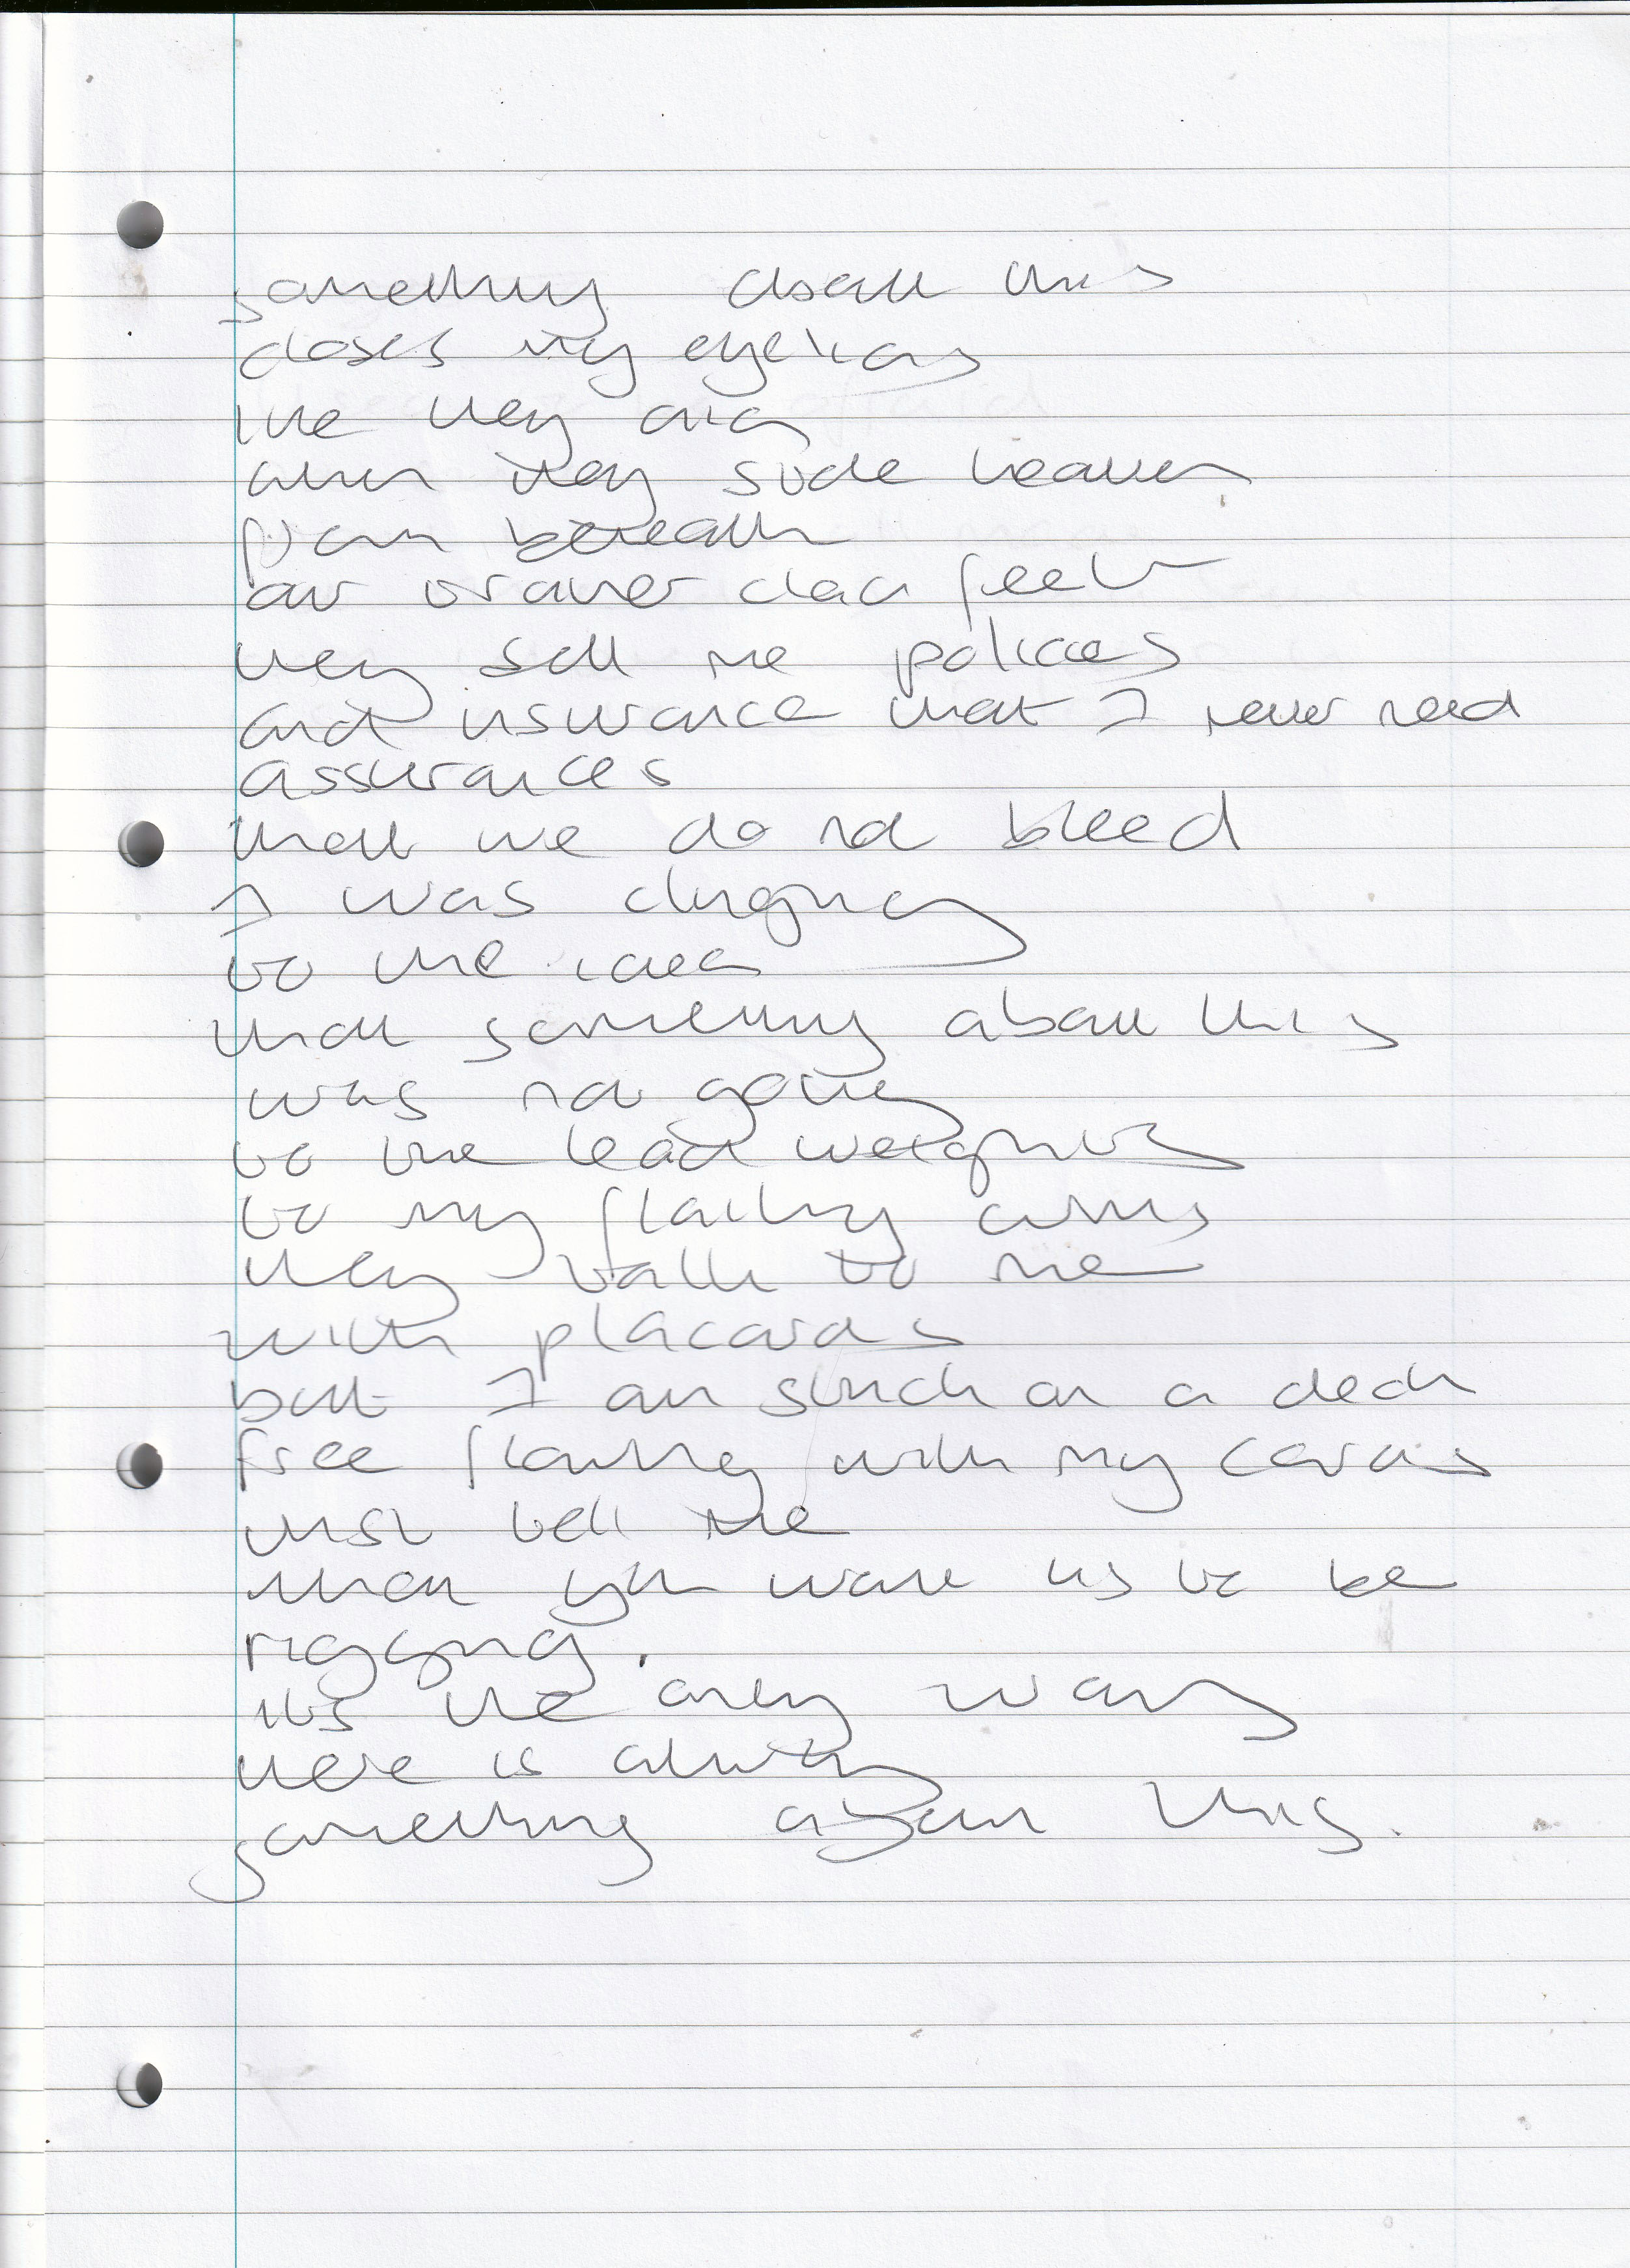 something about this
closes my eyelids
like they did
when they stole heaven
from beneath
our trainer clad feet
they sell me policies
and insurance that I never need
assurances
that we do not bleed
I was clinging
to the idea
that something about this
was not going
to tie lead weights
to my flailing arms
they talk to me
with placards
but I am stuck on a deck
free floating with my cards
just tell me
what you want us to be
rigging.
its the only way
there is always
something about this.